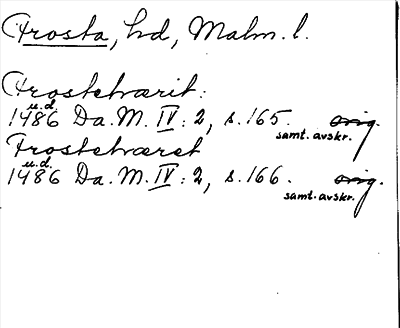 Frosta, hd, Malm. l.
Frosteherit:
u.d.
1486 Da. M. IV: 2, s. 165. orig.
samt. avskr.
Frosteheret
u.d.
1486 Da. M. IV: 2, s. 166. orig.
samt. avskr.